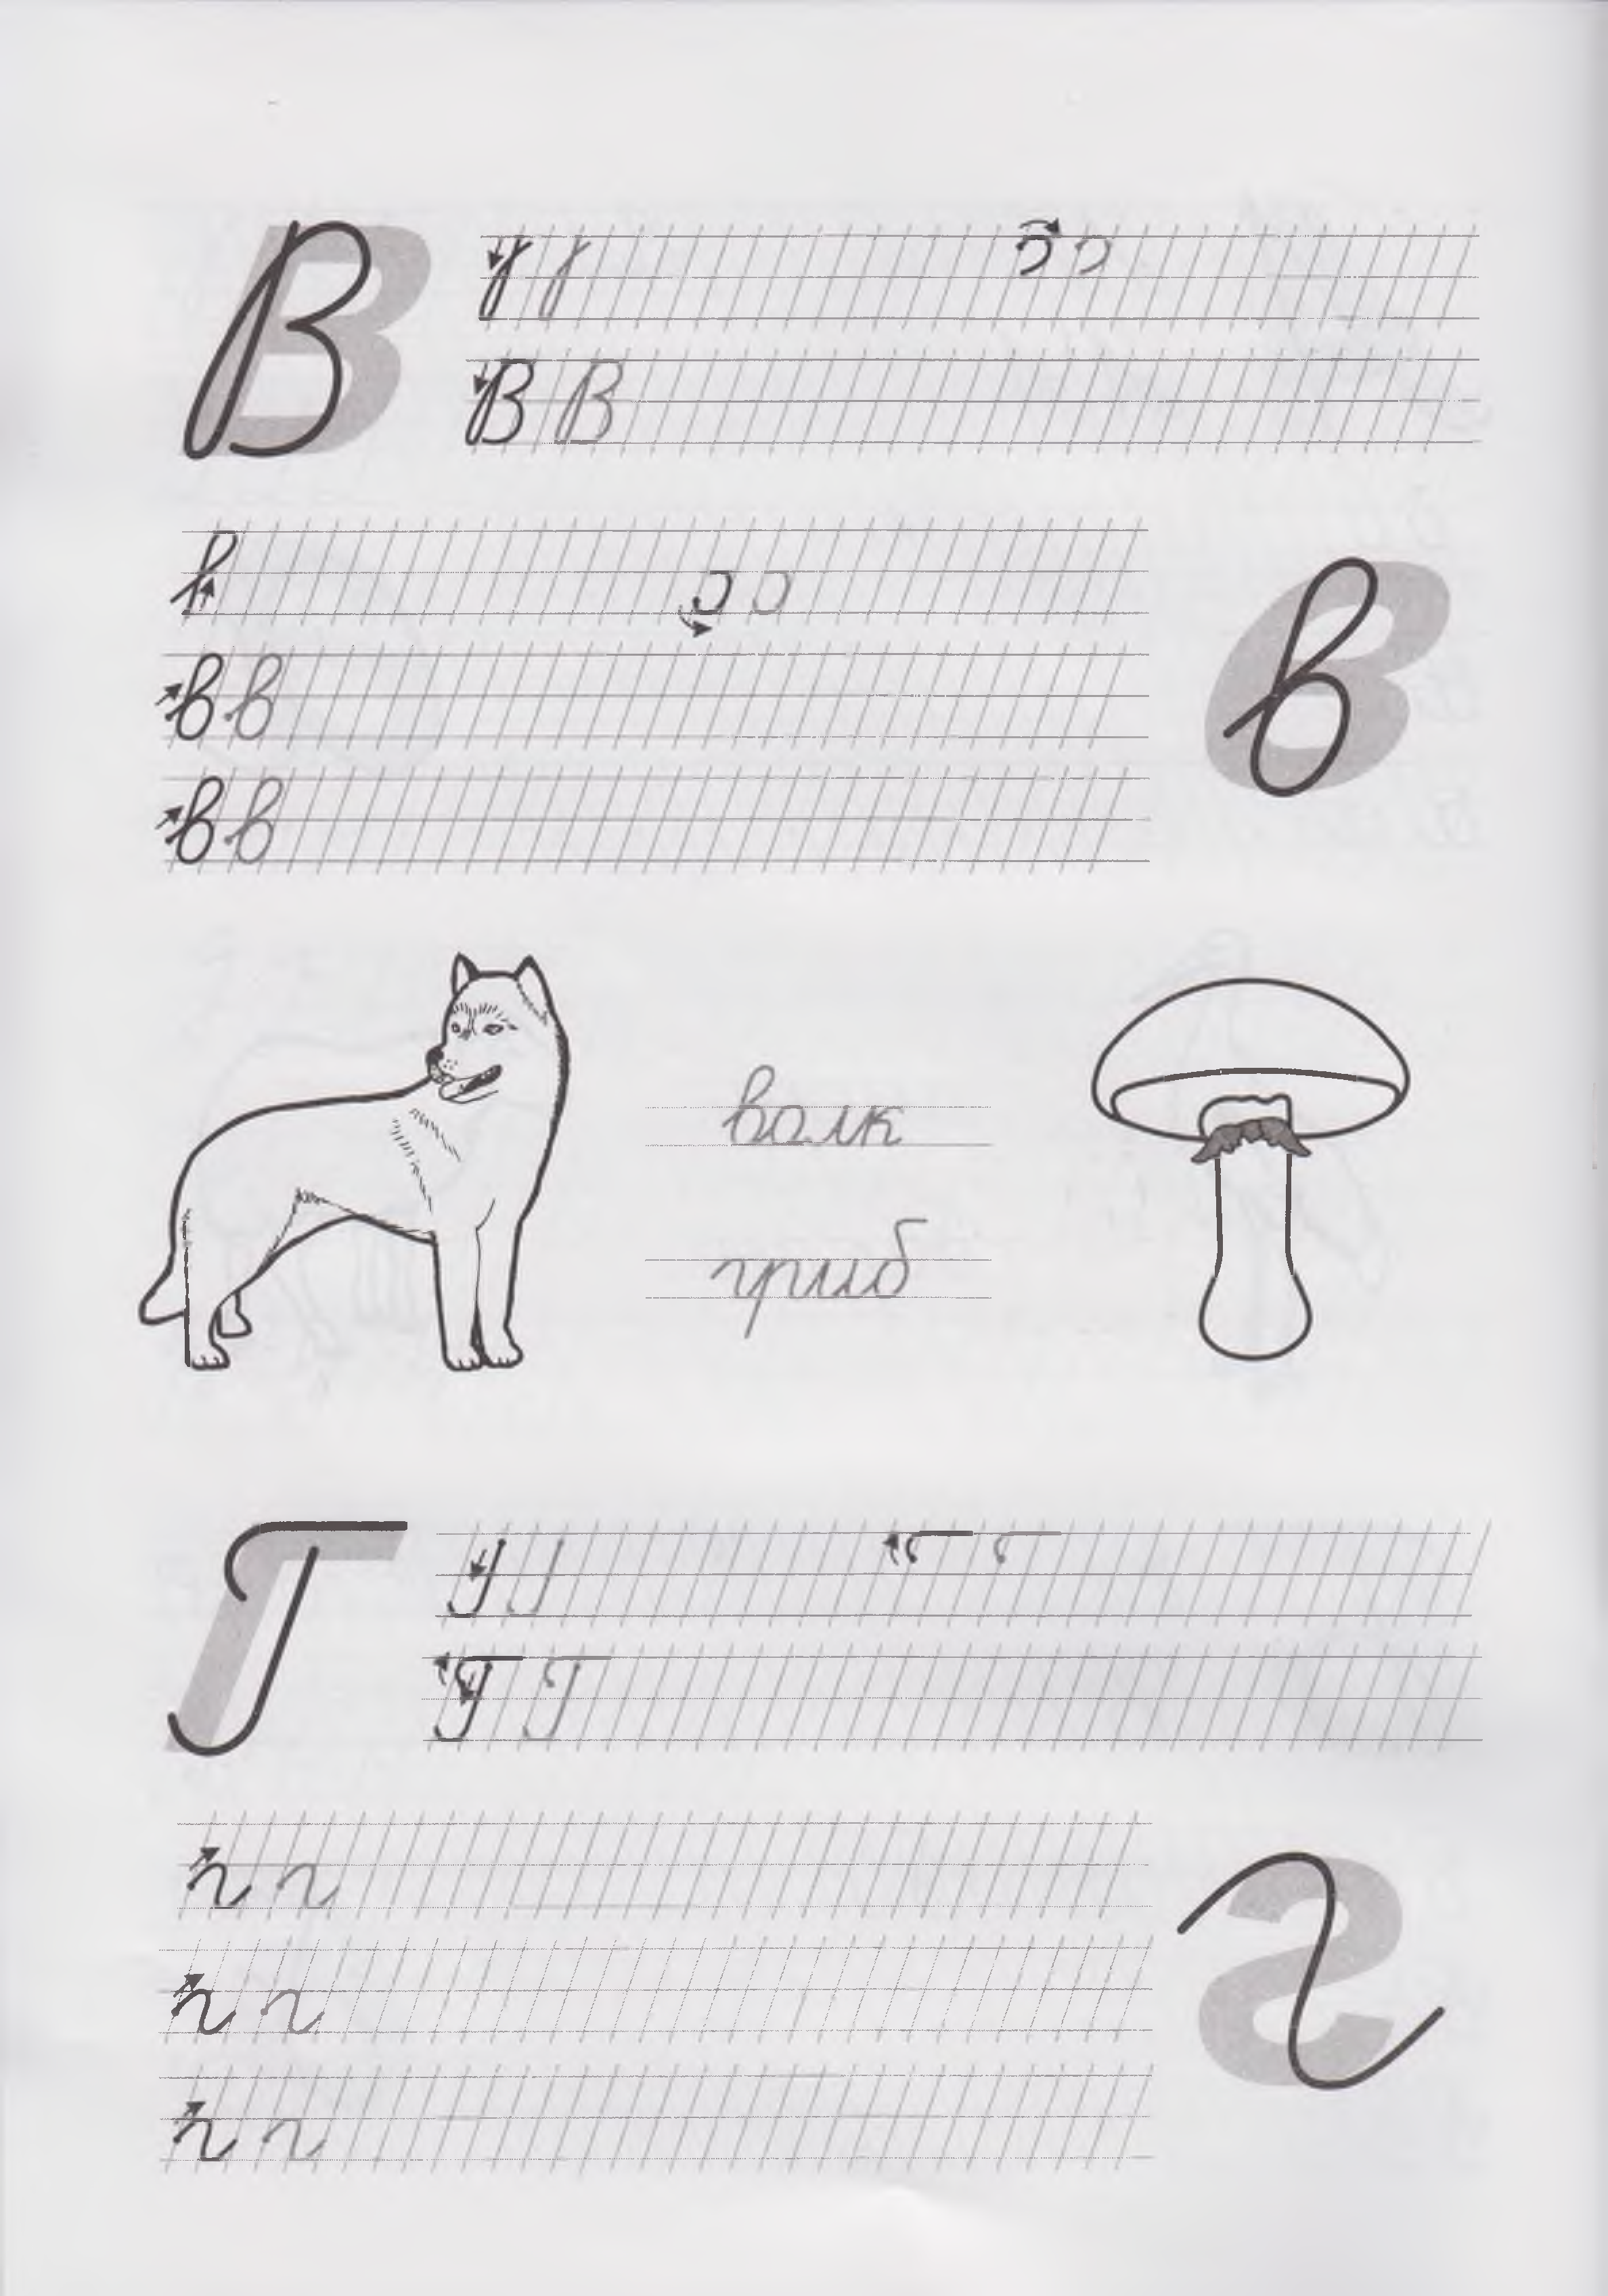 В
В В
в
в в
в в
волк
гриб
Г
Г Г
г г
г г
г
г г